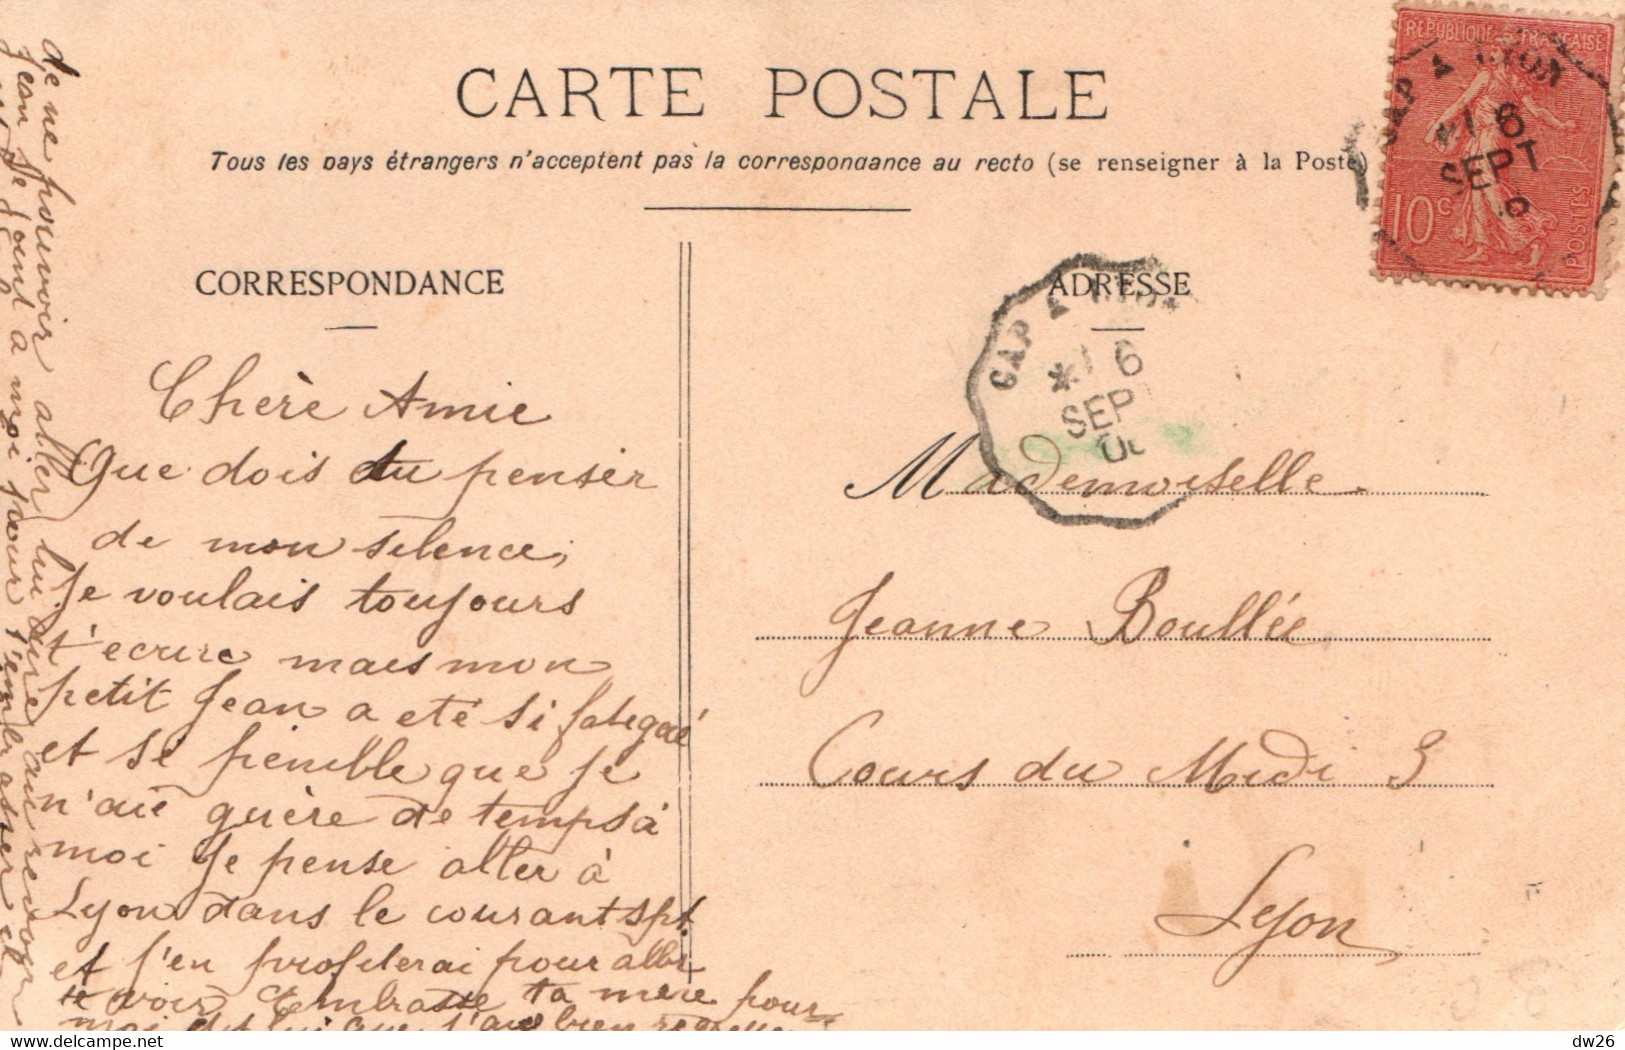 CARTE POSTALE
Tous les pays étrangers n'acceptent pas la correspondance au recto (se renseigner à la Poste)
REPUBLIQUE FRANÇAISE
10c
POSTES
GAP A LYON
*1 6
SEPT
CORRESPONDANCE
ADRESSE
GAP A LYON
*1 6
SEPT
06
Chère Amie
Que dois tu penser
de mon silence,
Je voulais toujours
t'ecrire mais mon
petit Jean a eté si fatigué
et si pénible que je
n'ai guère de temps à
moi Je pense aller à
Lyon dans le courant Spt.
et j'en profiterai pour aller
te voir Embrasse ta mère pour
moi dis lui que j'ai bien regretté
de ne pouvoir aller lui dire au revoir
Jean se joint a moi pour t'embrasser et
Mademoiselle
Jeanne Boullée
Cours du Midi 3
Lyon
www.delcampe.net
dw26